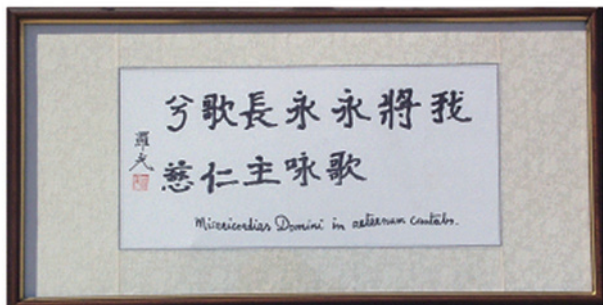 我將永永長歌兮
歌咏主仁慈
Misericordias Domini in aeternum cantabo.
羅光